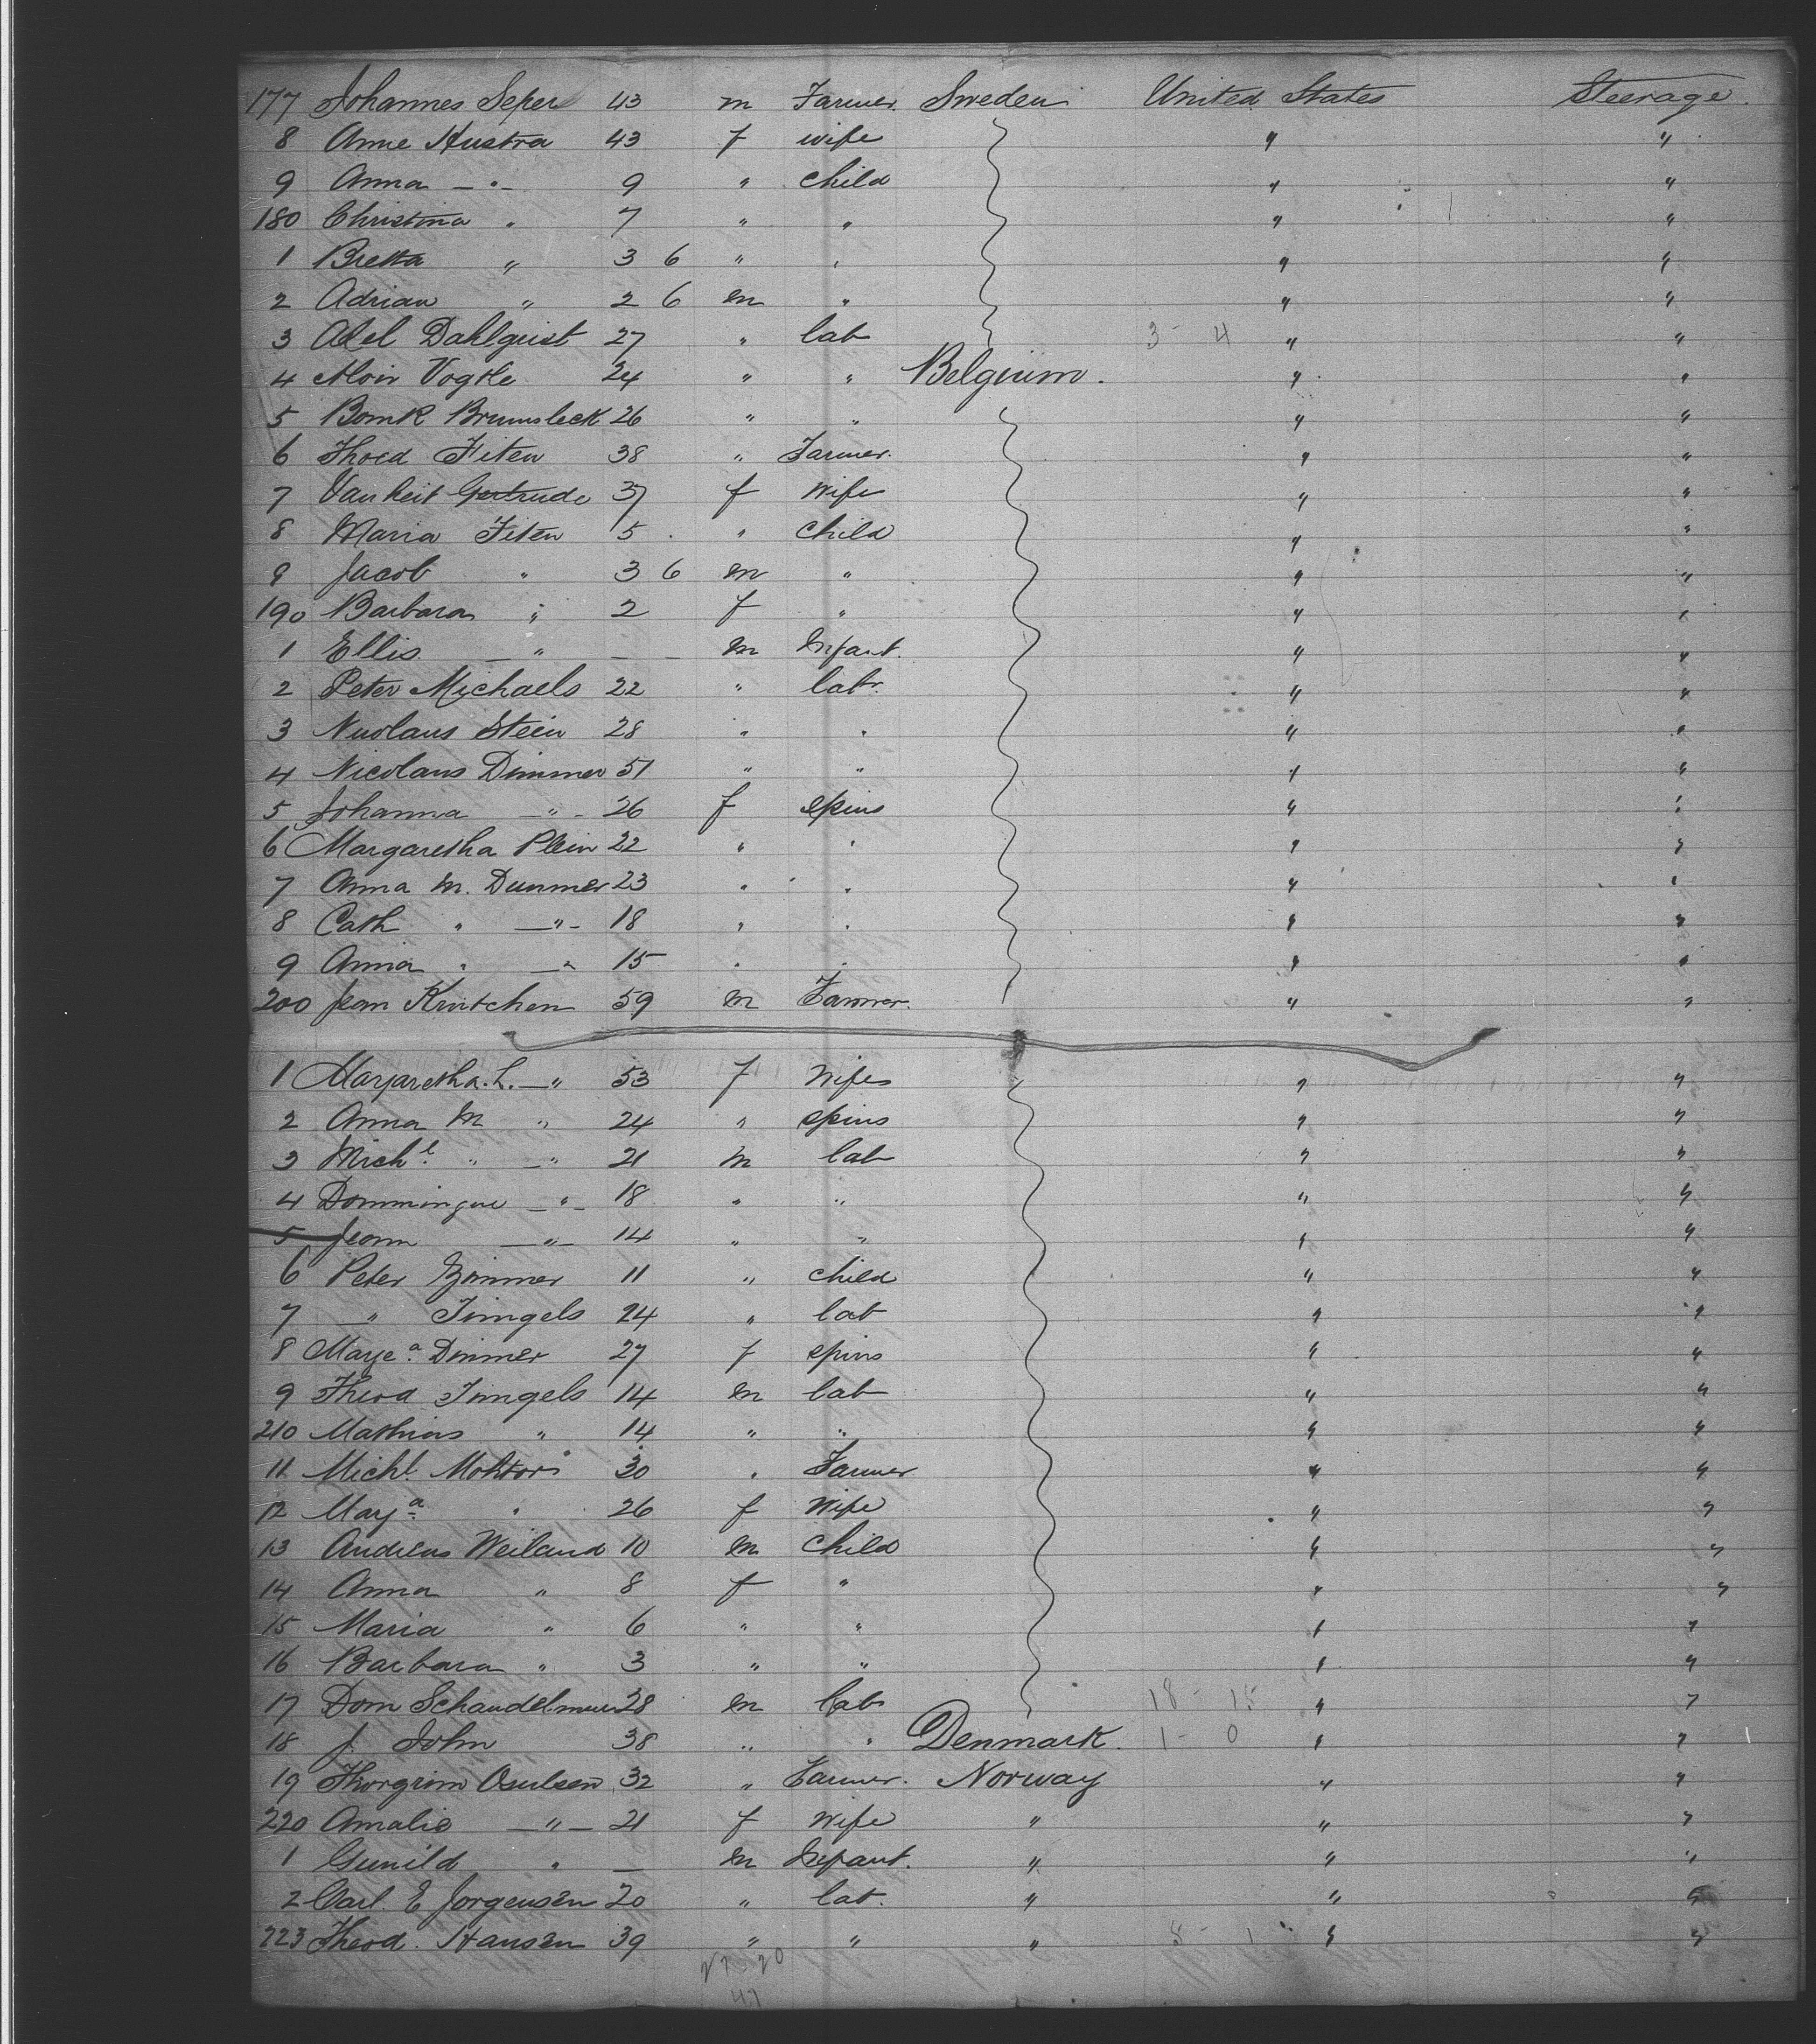 177 Johannes Seper 43 m Farmer Sweden United States Steerage.
8 Anne Hustra 43 f wife " "
9 Anna — " — 9 " child " "
180 Christina " 7 " " " "
1 Bretta " 3 6 " " " "
2 Adrian " 2 6 m " " "
3 Axel Dahlquist 27 " lab 3 - 4 " "
4 Alois Vogtle 24 " " Belgium. " "
5 Bomk Brumsleck 26 " " " "
6 Thoed Fiten 38 " Farmer. " "
7 Vanheit Gertrude 37 f wife " "
8 Maria Fiten 5 " child " "
9 Jacob " 3 6 m " " "
190 Barbara " 2 f " " "
1 Ellis — " — — m Infant. " "
2 Peter Michaels 22 " labr. " "
3 Nicolaus Stein 28 " " " "
4 Nicolaus Dimmer 51 " " " "
5 Johanna — " — 26 f spins " "
6 Margaretha Plein 22 " " " "
7 Anna M. Dummer 23 " " " "
8 Cath " — " — 18 " " " "
9 Anna " — " 15 " " " "
200 Jean Krutchen 59 m Farmer. " "
1 Margaretha. L. — " 53 f Wife " "
2 Anna M " 24 " spins " "
3 Michl. " — " 21 m lab " "
4 Dommingue — " — 18 " " " "
5 Jeann — " — 14 " " " "
6 Peter Zimmer 11 " child " "
7 " Timgels 24 " lab " "
8 Marjea. Dimmer 27 f spins " "
9 Theod Timgels 14 m lab " "
210 Mathias " 14 " " " "
11 Michl. Moktor 30 " Farmer " "
12 Marja " 26 f Wife " "
13 Andreas Weiland 10 m child " "
14 Anna " 8 f " " "
15 Maria " 6 " " " "
16 Barbara " 3 " " " "
17 Dom Schaudelmeur 28 m lab 18 - 15 " "
18 J. John 38 " " Denmark. 1 - 0 " "
19 Thorgrim Osulsen 32 " Farmer. Norway " "
220 Amalie — " — 21 f Wife " " "
1 Gunild " — m Infant. " " "
2 Carl. E Jorgensen 20 " lab. " " "
223 Theod. Hansen 39 " " " " "
27 20
47